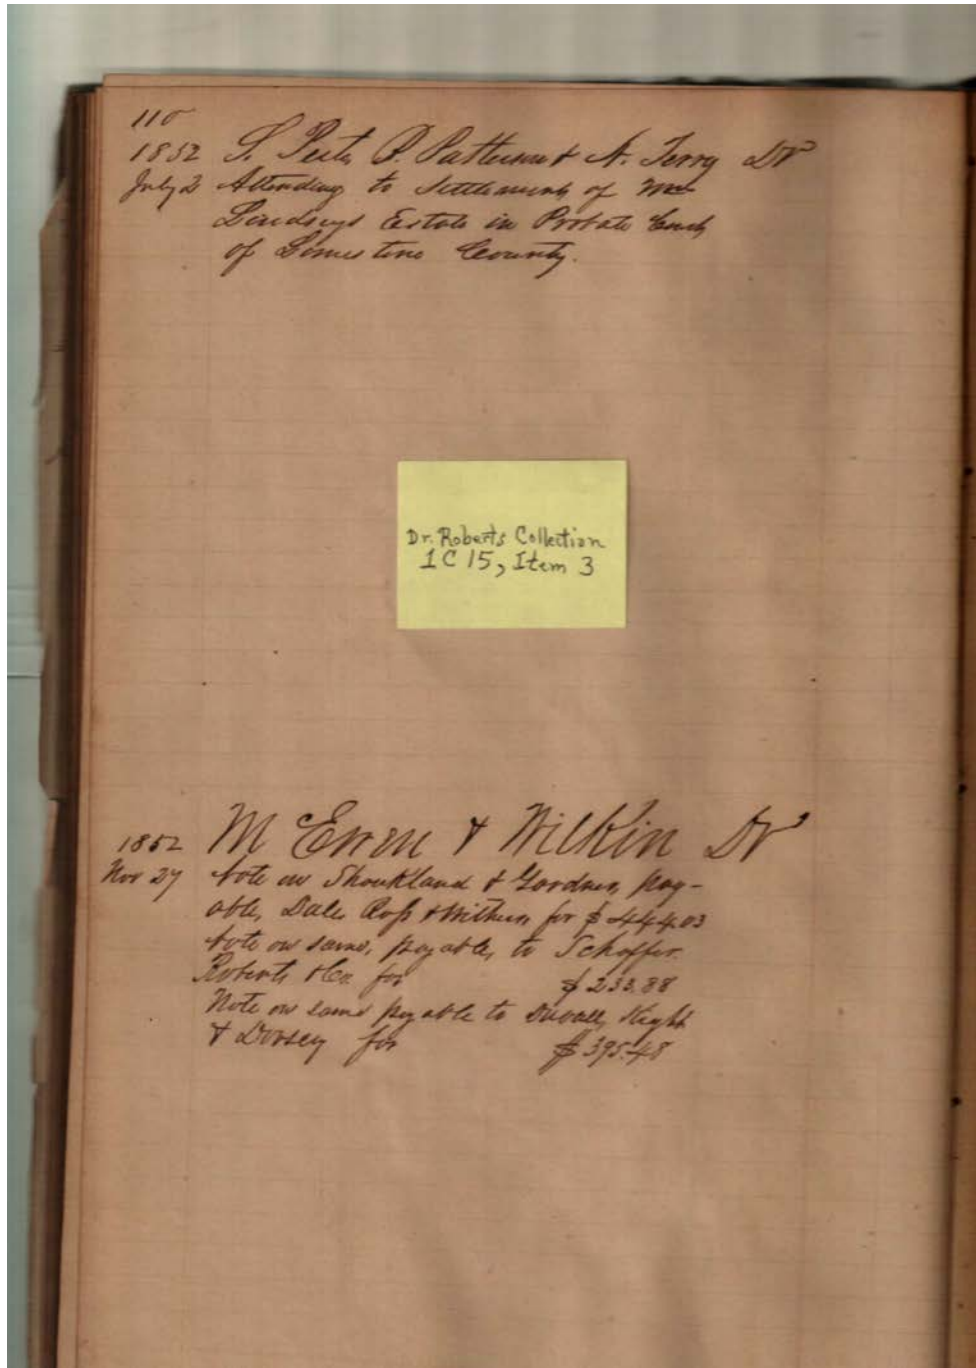 110
1852 S. Peete, P. Patterson & N. Terry Dr
July 2 Attending to settlement of
Lindseys Estate in Probate Court
of Limestone County.
Dr. Roberts Collection
1C15, Item 3
1852 McEwen & Wilkin Dr
Nov 27 Note on Shoukland & Gordner, pay-
able, Dale Ross & Withers for $444.03
Note on same, payable, to Schaffer
Roberts & Co. for $233.88
Note on same payable to Duvall, Keigh
& Dorsey for $395.48